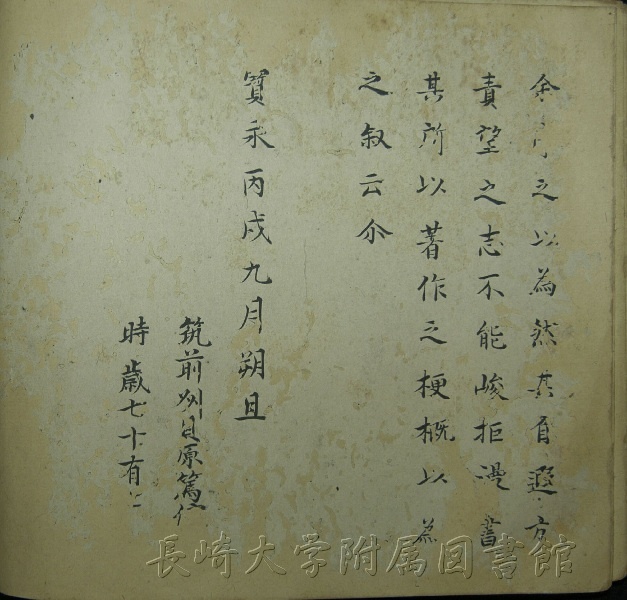 余 之以為然其自遐方
責望之志不能峻拒漫書
其所以著作之梗概以為
之叙云尒
寳永丙戌九月朔旦
筑前州貝原篤信
時歳七十有七
長崎大学附属図書館